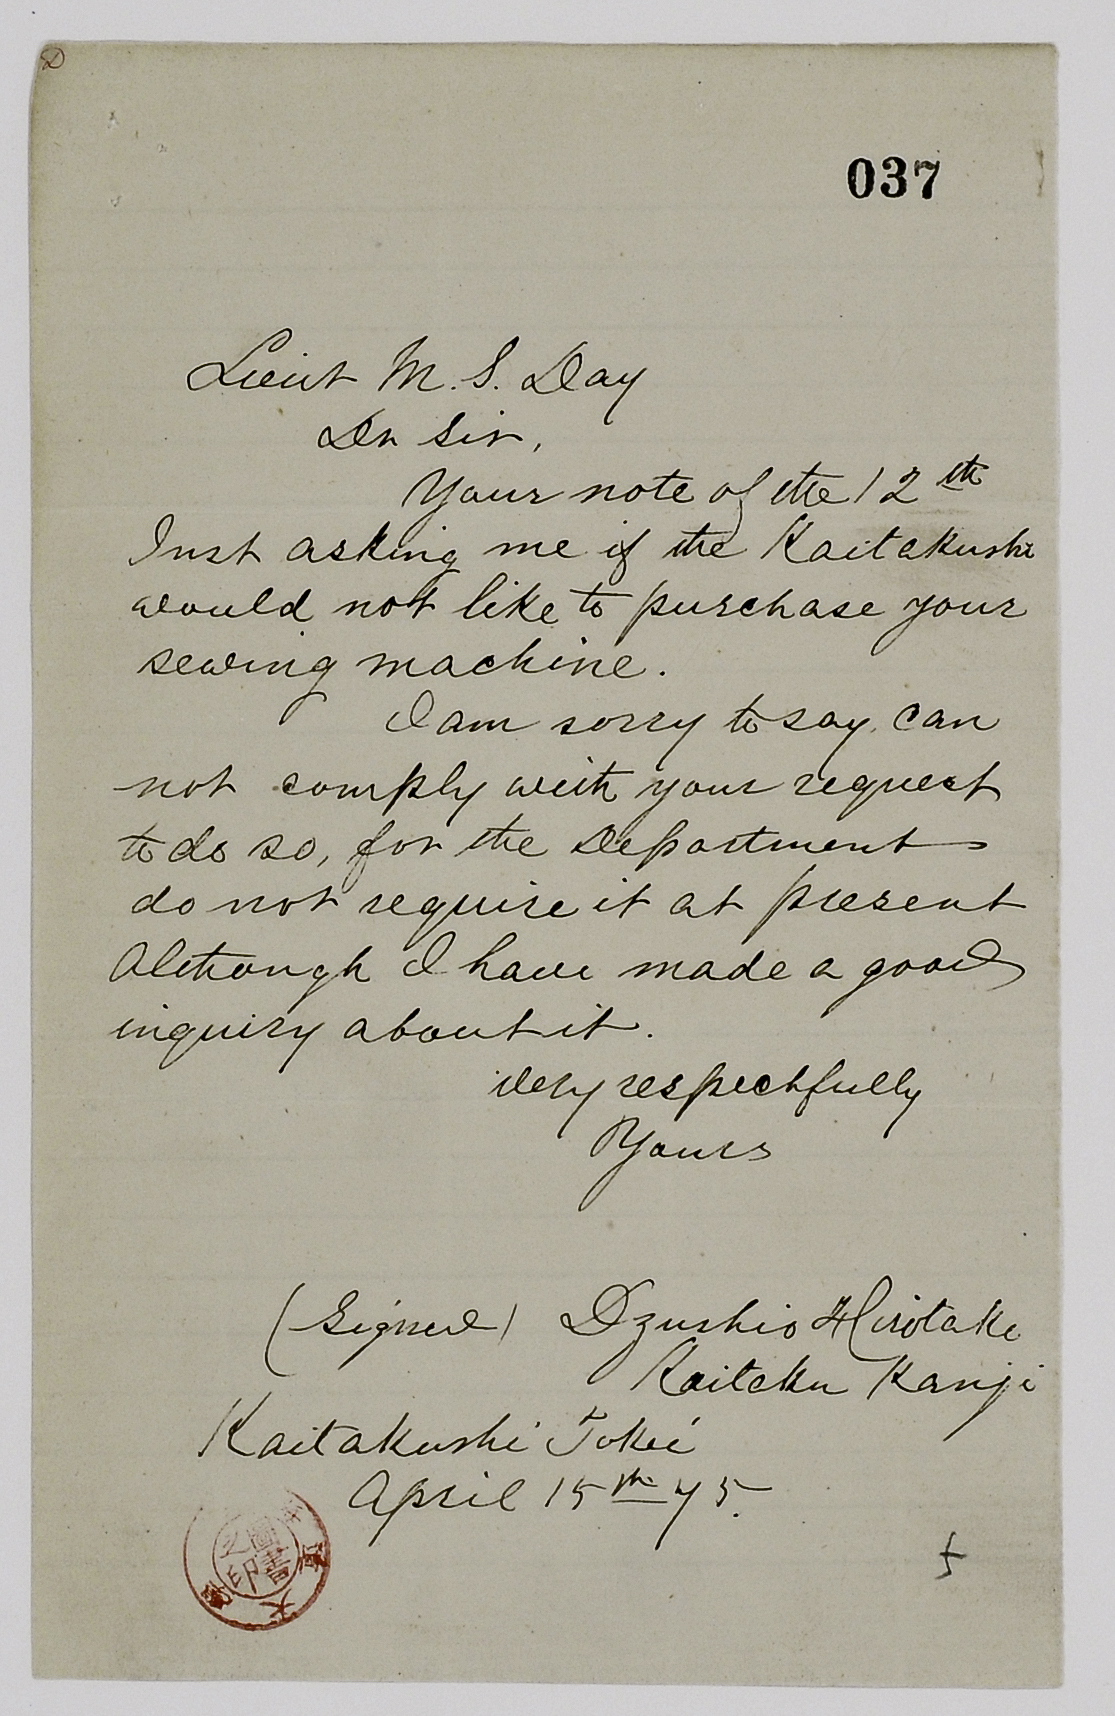 037
Lieut M. S. Day
Dr Sir,
Your note of the 12th
Inst asking me if the Kaitakushi
would not like to purchase your
sewing machine.
I am sorry to say, can
not comply with your request
to do so, for the Department
do not require it at present
Although I have made a good
inquiry about it.
Very respectfully
Yours
(Signed) Dzushio Hirotake
Kaitaku Kanji
Kaitakushi Tokei
April 15th 75.
之圖
書印
大
5